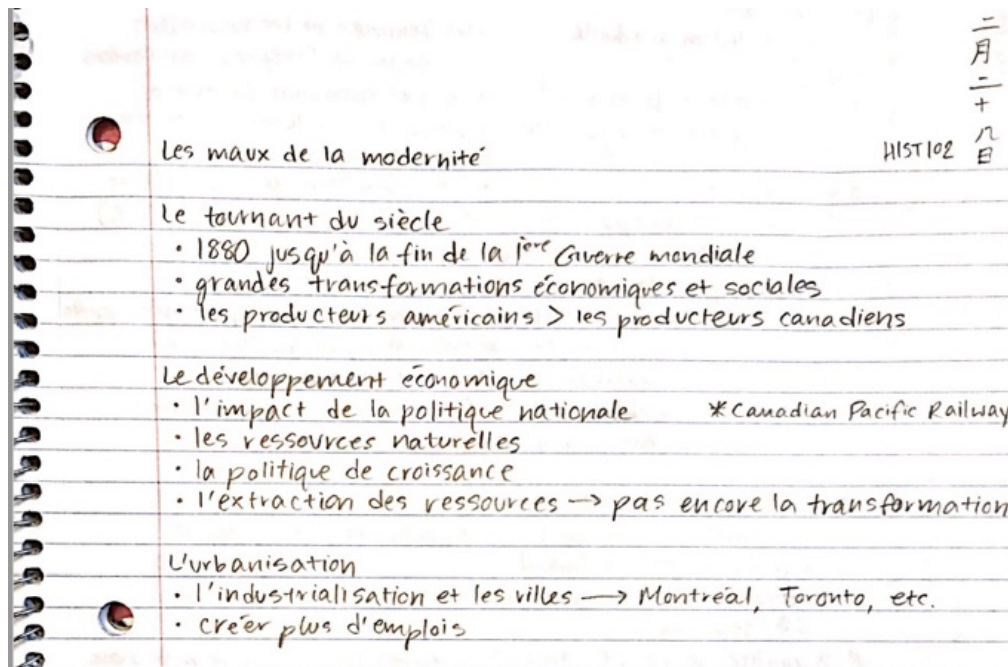 二月二十八日
Les maux de la modernité HIST102
Le tournant du siècle
• 1880 jusqu'à la fin de la 1ère Guerre mondiale
• grandes transformations économiques et sociales
• les producteurs américains > les producteurs canadiens
Le développement économique
• l'impact de la politique nationale *Canadian Pacific Railway
• les ressources naturelles
• la politique de croissance
• l'extraction des ressources → pas encore la transformation
L'urbanisation
• l'industrialisation et les villes → Montréal, Toronto, etc.
• créer plus d'emplois